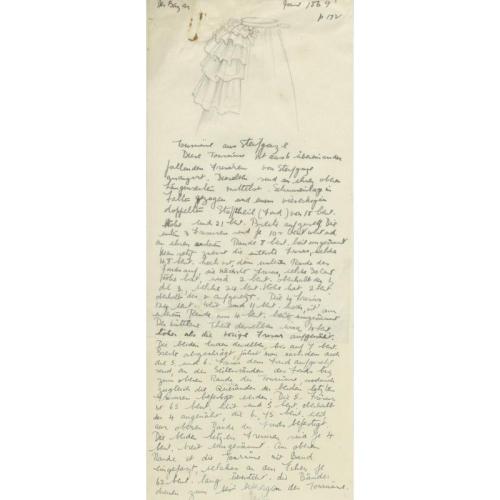 Der Bazar
Juni 1869
p 172
Tournüre aus Steifgaze
Diese Tournüre ist aus 6 übereinander
fallenden Frisuren von Steifgaze
arrangirt. Dieselben sind an ihren oberen
in
Falten gezogen und einem viereckigen
doppelten Stofftheil (Fond) von 18 Cent.
Höhe und 21 Cent. Breite aufgesetzt Die
ersten 3 Frisuren sind je 100 Cent weit und
an ihrem Rande 8 Cent. breit umgesäumt
Man setzt zuerst die unterste Frisur, welche
48 Cent. hoch ist, dem unteren Rande des
Fonds auf, die nächste Frisur, welche 30 Cent
Höhe hat, wird 2 Cent. oberhalb der 1,
die 3, welche 24 Cent. Höhe hat, 2 Cent
oberhalb der 2 aufgesetzt. Die 4 Frisur
Cent. weit und Cent. hoch, ist am
unteren Rande nur 4 Cent. breit umgesäumt
Der mittlere Theil derselben wird Cent
höher als die vorige Frisur aufgesetzt.
Die beiden Enden derselben bis auf 7 Cent.
Breite abgeschrägt
die 5 und 6 Frisur dem Fond aufgesetzt
sind, an den Seitenrändern des Fonds bis
zum oberen Rande der Tournüre, wodurch
zugleich die Querränder der beiden letzten
Frisuren befestigt werden. Die 5. Frisur
ist 65 Cent. weit und 5 Cent. oberhalb
der 4 angenäht, die 6, 45 Cent. weit
am oberen Rande des Fonds befestigt.
Die beiden letzten Frisuren sind je 4
Cent. breit umgesäumt. Am oberen
Rande ist die Tournüre mit Band
eingefasst, welches an den Seiten je
62 Cent. lang übersteht, die Bänder
dienen zum Befestigen der Tournüre.